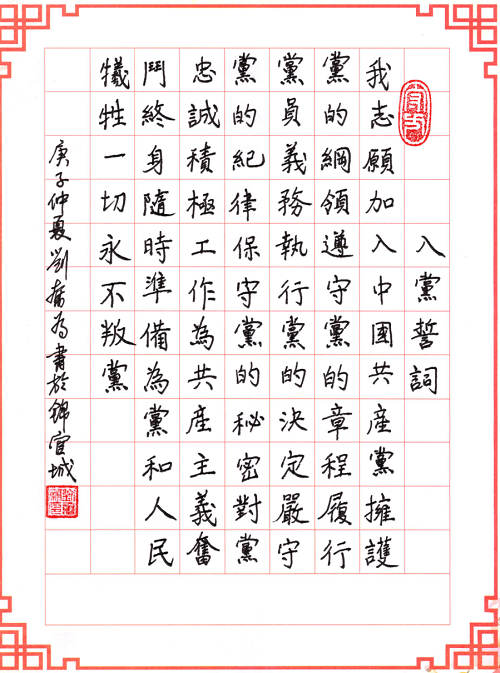 入黨誓詞
我志願加入中國共産黨擁護
黨的綱領遵守黨的章程履行
黨員義務執行黨的決定嚴守
黨的紀律保守黨的秘密對黨
忠誠積極工作為共産主義奮
鬥終身隨時準備為黨和人民
犧牲一切永不叛黨
庚子仲夏劉为書於錦官城